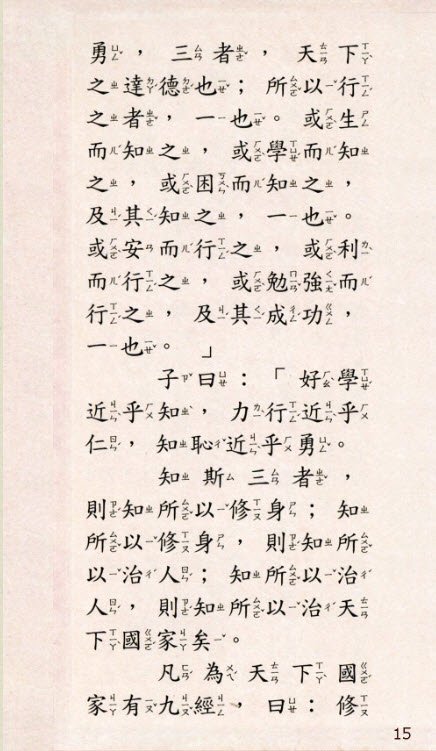 勇，三者，天下
之達德也；所以行
之者，一也。或生
而知之，或學而知
之，或困而知之，
及其知之，一也。
或安而行之，或利
而行之，或勉強而
行之，及其成功，
一也。」
子曰：「好學
近乎知，力行近乎
仁，知恥近乎勇。
知斯三者，
則知所以修身；知
所以修身，則知所
以治人；知所以治
人，則知所以治天
下國家矣。
凡為天下國
家有九經，曰：修
15